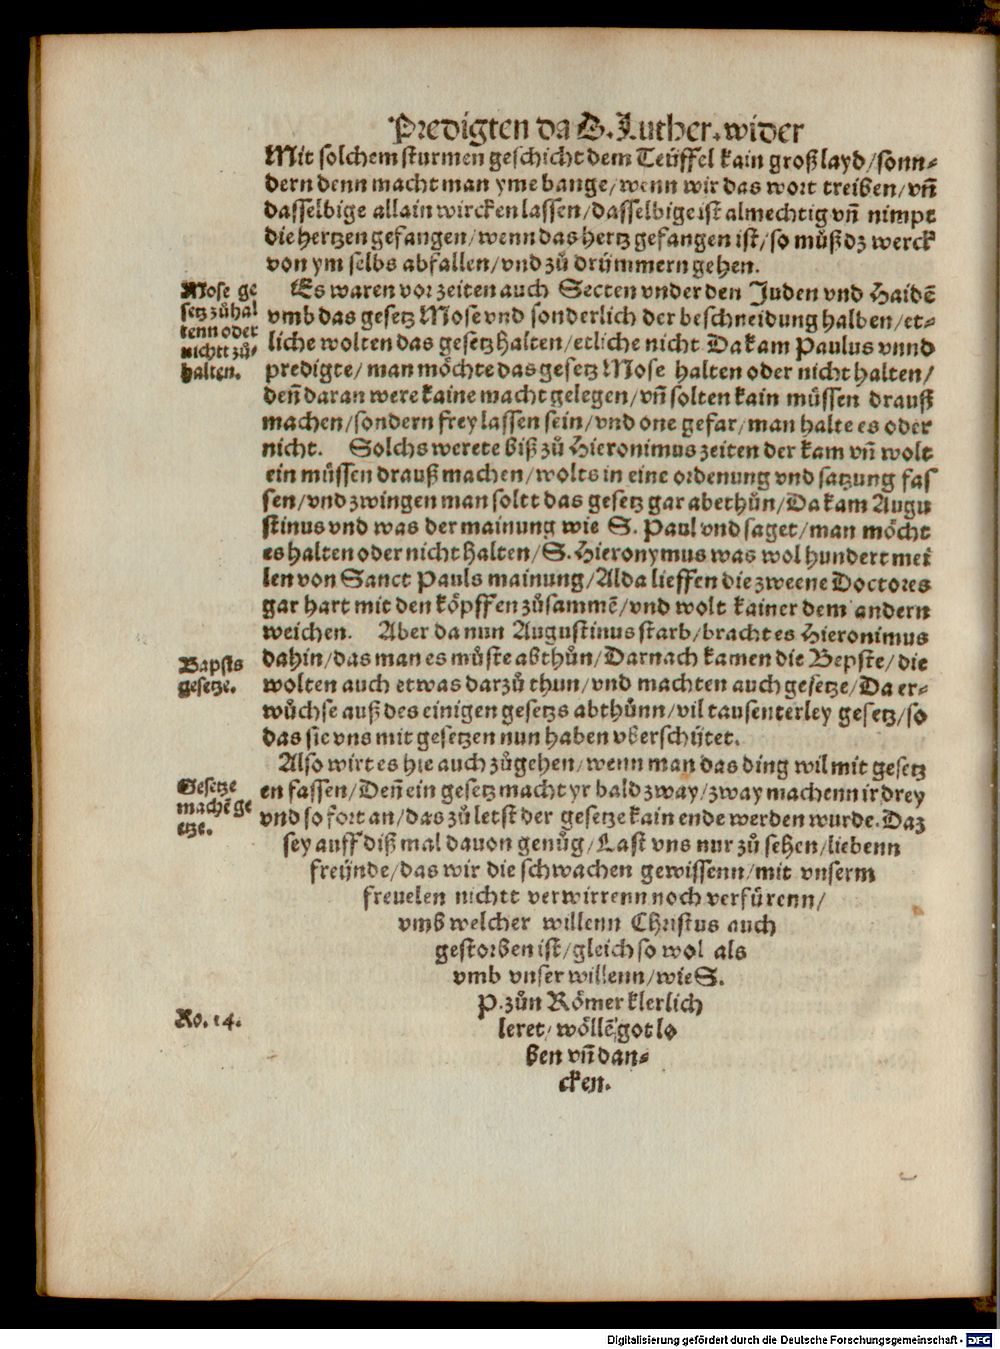 Predigten da D. Luther. wider
Mit solchem sturmen geschicht dem Teüffel kain groß layd/sonn-
dern denn macht man yme bange/wenn wir das wort treiben/vñ
dasselbige allain wircken lassen/dasselbige ist almechtig vñ nimpt
die hertzen gefangen/wenn das hertz gefangen ist/so můß dz werck
von ym selbs abfallen/vnd zů drümmern gehen.
Mose ge
setz zů hal
tenn oder
nichtt zů-
halten.
Es waren vor zeiten auch Secten vnder den Juden vnd Haidē
vmb das gesetz Mose vnd sonderlich der beschneidung halben/et-
liche wolten das gesetz halten/etliche nicht Da kam Paulus vnnd
predigte/man möchte das gesetz Mose halten oder nicht halten/
deñ daran were kaine macht gelegen/vñ solten kain müssen drauß
machen/sondern frey lassen sein/vnd one gefar/man halte es oder
nicht. Solchs werete biß zů Hieronimus zeiten der kam vñ wolt
ein müssen drauß machen/wolts in eine ordenung vnd satzung fas
sen/vnd zwingen man soltt das gesetz gar abethůn/Da kam Augu
stinus vnd was der mainung wie S. Paul vnd saget/man möcht
es halten oder nicht halten/S. Hieronymus was wol hundert mei
len von Sanct Pauls mainung/Alda lieffen die zweene Doctores
gar hart mit den köpffen zůsammē/vnd wolt kainer dem andern
weichen. Aber da nun Augustinus starb/bracht es Hieronimus
dahin/das man es můste abthůn/Darnach kamen die Bepste/die
Bapsts
gesetze.
wolten auch etwas darzů thun/vnd machten auch gesetze/Da er-
wůchse auß des einigen gesetzs abthůnn/vil tausenterley gesetz/so
das sie vns mit gesetzen nun haben vberschütet.
Also wirt es hie auch zůgehen/wenn man das ding wil mit gesetz
Gesetze
machē ge
etze.
en fassen/Deñ ein gesetz macht yr bald zway/zway machenn ir drey
vnd so fort an/das zů letst der gesetze kain ende werden wurde. Daz
sey auff diß mal dauon genůg/Last vns nur zů sehen/liebenn
freünde/das wir die schwachen gewissenn/mit vnserm
freuelen nichtt verwirrenn noch verfürenn/
vmb welcher willenn Christus auch
gestorben ist/gleich so wol als
vmb vnser willenn/wie S.
P. zůn Römer klerlich
Ro. 14.
leret/wöllē got lo
ben vñ dan-
cken.
Digitalisierung gefördert durch die Deutsche Forschungsgemeinschaft - DFG